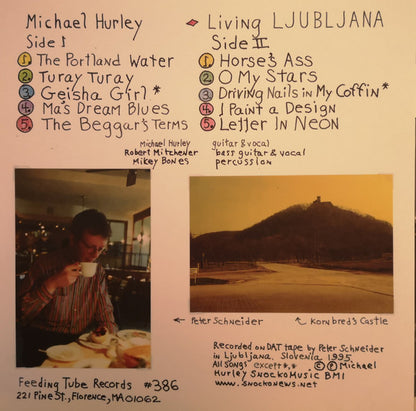 Michael Hurley
Living LJUBLJANA
Side I
1. The Portland Water
2. Turay Turay
3. Geisha Girl *
4. Ma's Dream Blues
5. The Beggar's Terms
Side II
1. Horse's Ass
2. O My Stars
3. Driving Nails in My Coffin*
4. I Paint a Design
5. Letter In Neon
Michael Hurley guitar & vocal
Robert Mitchener bass guitar & vocal
Mikey Bones percussion
← Peter Schneider
Kornbred's Castle
Recorded on DAT tape by Peter Schneider
in Ljubljana, Slovenia 1995
All songs except *,* © ℗ Michael
Hurley SnockoMusic BMI
www.snockonews.net
Feeding Tube Records #386
221 Pine St., Florence, MA 01062